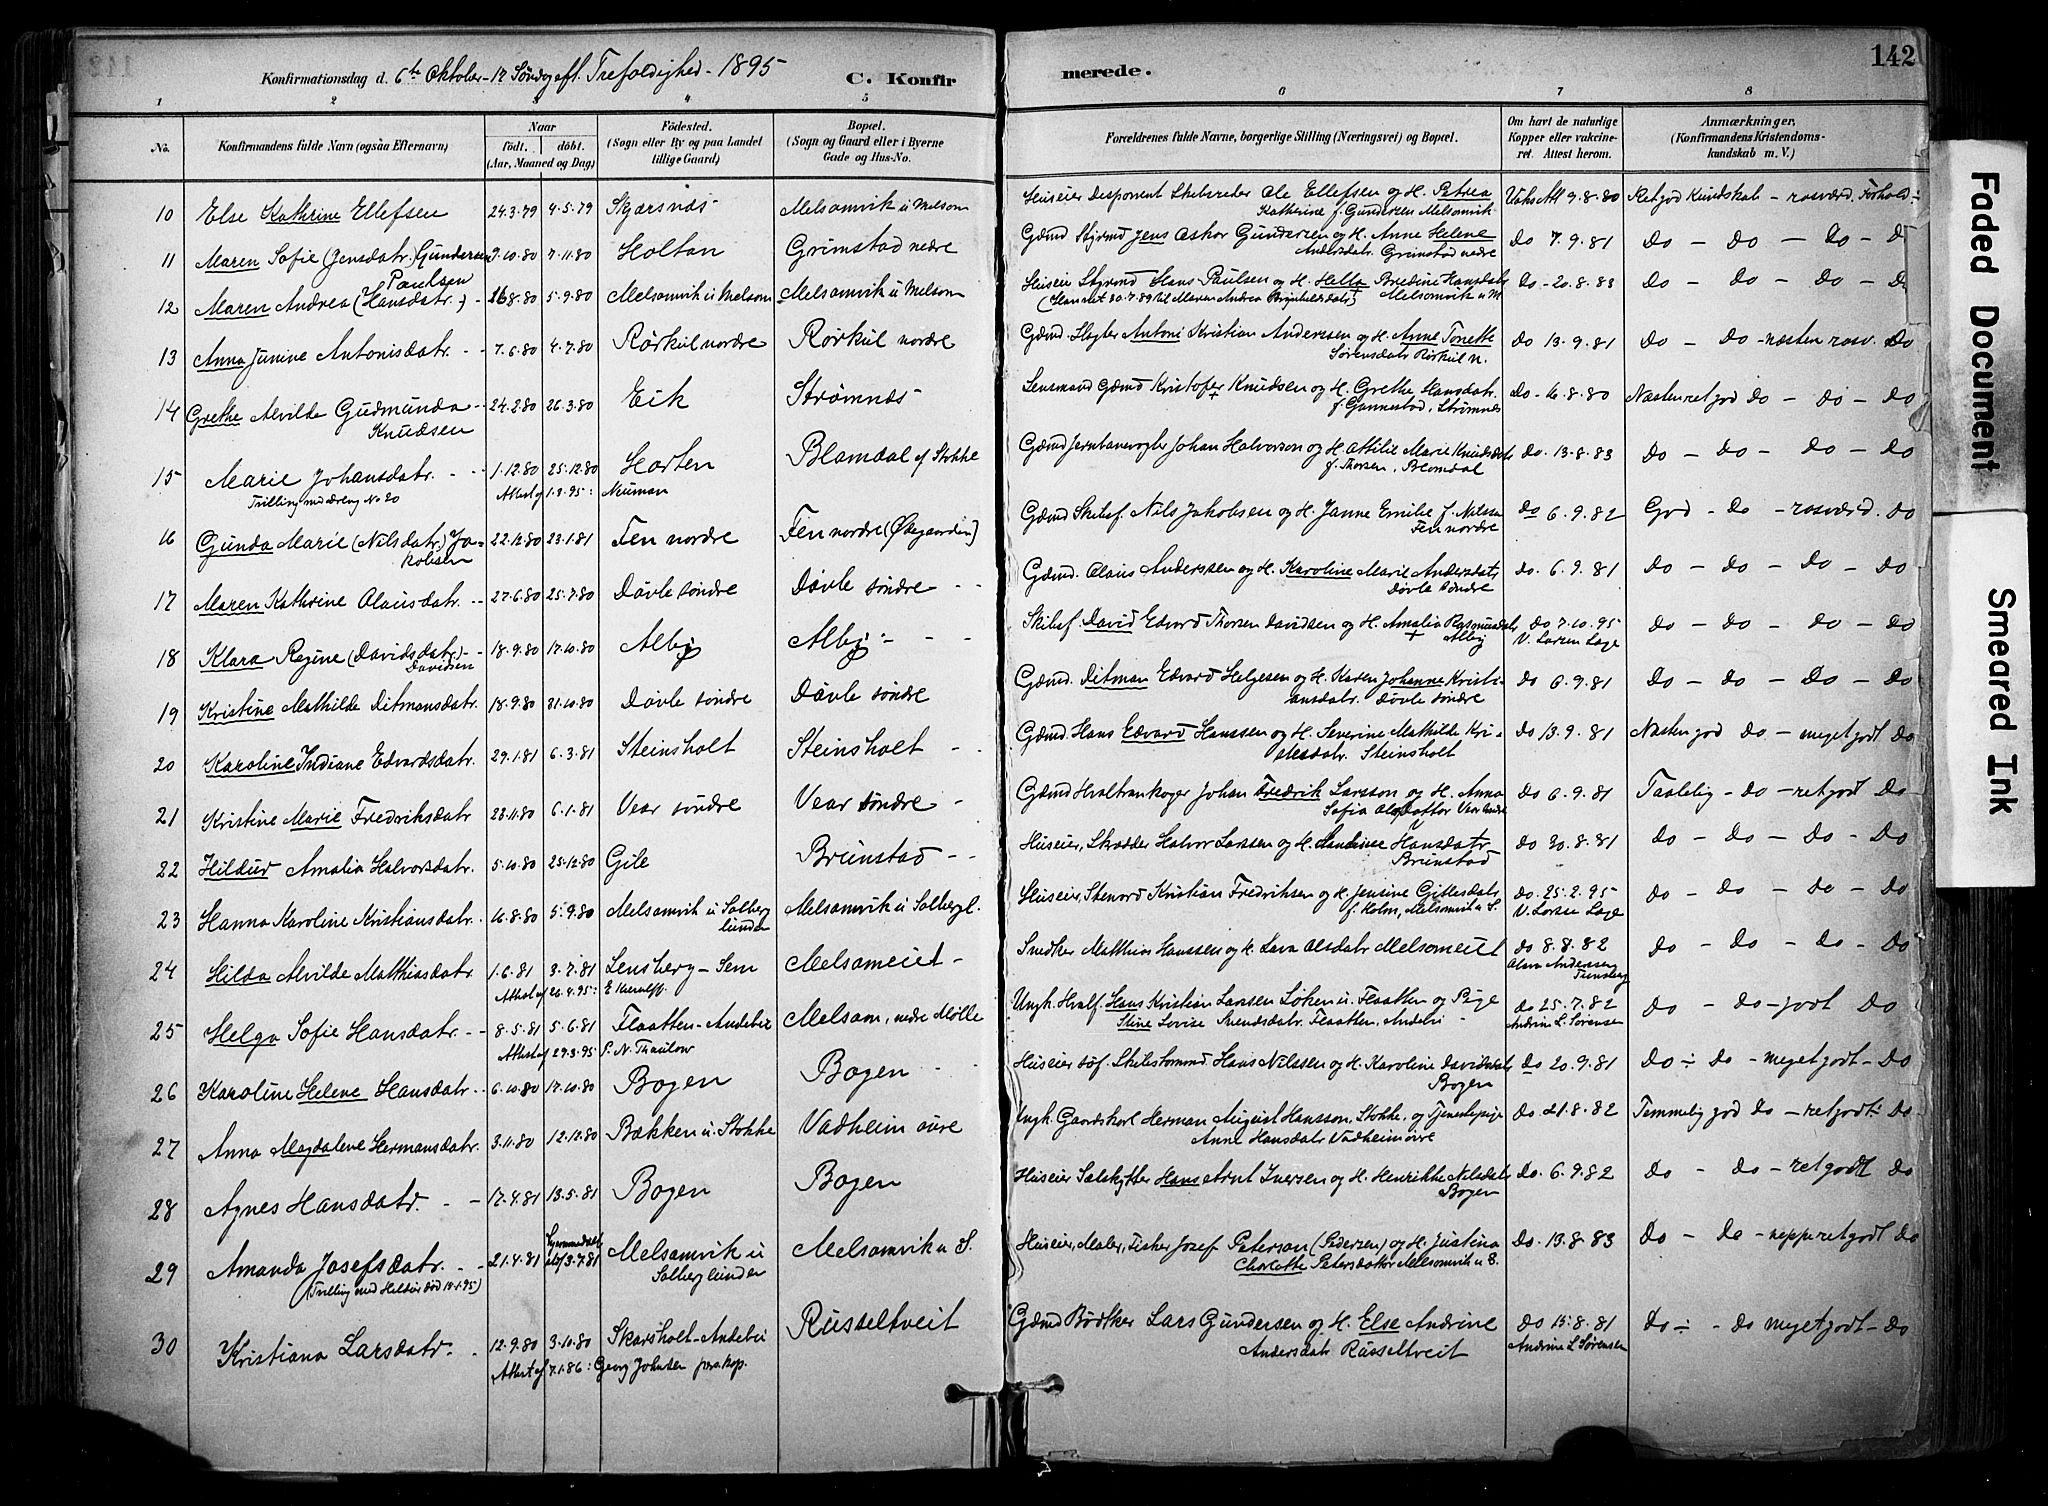 142
Konfirmationsdag d. 6te Oktober - 17 Søndag eft. Trefoldighed - 1895 C. Konfirmerede.
1 2 3 4 5 6 7 8
No. Konfirmandens fulde Navn (ogsaa Efternavn) Naar født. døbt. (Aar, Maaned og Dag) Födested. (Sogn eller By og paa Landet tillige Gaard) Bopæl. (Sogn og Gaard eller i Byerne Gade og Hus-No.) Forældrenes fulde Navne, borgerlige Stilling (Næringsvei) og Bopæl. Om havt de naturlige Kopper eller vaccineret. Attest herom. Anmærkninger, (Konfirmandens Kristendomskundskab m. V.)
10 Else Kathrine Ellefsen 24.3.79 4.5.79 Skjærsnæs Melsomvik u Melsom Huseier Disponent Skibsreder Ole Ellefsen og H. Petrea Kathrine f. Gundersen Melsomvik 9.8.80 Ret god Kundskab - rosværd. Forhold
11 Maren Sofie (Jensdatr.) Gundersen 9.10.80 7.11.80 Holtan Grimstad nedre Gdmd Styrmd Jens Oskar Gundersen og H. Anne Helene Andersdatr. Grimstad nedre Do 7.9.81 Do - Do - Do - Do
12 Maren Andrea (Hansdatr.) Paulsen 16.8.80 5.9.80 Melsomvik u Melsom Melsomvik u Melsom Huseier Styrmd Hans Paulsen og H. Hella Bredine Hansdatr Melsomvik u M Do - 20.8.83 Do - Do - Do - Do
13 Anna Junine Antonisdatr. 7.6.80 4.7.80 Rørkul nordre Rørkul nordre Gdmd Slagter Antoni Kristian Anderssen og H. Anne Tonette Sørensdatr Rørkul n. Do 13.9.81 Do - Do - næsten rosv. Do
14 Grethe Alvilde Gudmunda Knudsen 24.2.80 26.3.80 Eik Strømnes Lensmand Gdmd Kristofer Knudsen og H. Grethe Hansdatr. f. Gunnestad, Strømnes Do - 16.8.80 Næsten ret god Do - Do - Do
15 Marie Johansdatr. 1.12.80 25.12.80 Horten Blomdal af Stokke Gdmd Jernbanevogter Johan Halvorsen og H. Attilie Marie Knudsdatr f. Thorsen, Blomdal Do. 13.8.83 Do - Do - Do - Do
Tvilling Attest af 1.3.95: Neuman
16 Gunda Marie (Nilsdatr.) Jakobsen 22.12.80 23.1.81 Fen nordre Fen nordre (Ødegaarden) Gdmd Skibsf. Nils Jakobsen og H. Janne Emilie f. Nilssen Fen nordre Do 6.9.82 God - Do - rosværd. Do
17 Maren Kathrine Olausdatr. 27.6.80 25.7.80 Døvle søndre Døvle søndre Gdmd. Olaus Anderssen og H. Karoline Marie Andersdatr Døvle søndre Do. 6.9.81 Do - Do - Do - Do
18 Klara Regine (Davidsdatr.) Davidsen 18.9.80 17.10.80 Alby Alby Skibsf. David Edvard Thorsen Davidsen og H. Amalia Rasmusdatr Alby Do 7.10.95 V. Lorsen Lage Do - Do - Do - Do
19 Kristine Mathilde Ditmansdatr. 18.9.80 31.10.80 Døvle søndre Døvle søndre Gdmd. Ditman Edvard Helgesen og H. Karen Johanne Kristiansdatr. Døvle søndre Do 6.9.81 Do - Do - Do - Do
20 Karoline Indiane Edvardsdatr. 29.1.81 6.3.81 Steinsholt Steinsholt Gdmd. Hans Edvard Hanssen og H. Severine Mathilde Steinsholt Do 13.9.81 Næsten god Do - meget godt Do
21 Kristine Marie Fredriksdatr 23.11.80 6.1.81 Vear søndre Vear søndre Gdmd Hvaltrankoger Johan Fredrik Larsson og H. Anna Sofia Olofdotter Vear søndre Do 6.9.81 Taalelig - Do - ret godt Do
22 Hildur Amalia Halvorsdatr. 5.10.80 25.12.80 Gile Brunstad Huseier, Skrædder Halvor Larssen og H. Hansdatr Brunstad Do 30.8.81 Do - Do - Do - Do
23 Hanna Karoline Kristiansdatr. 16.8.80 5.9.80 Melsomvik u Solberg lunder Melsomvik u Solbergl. Huseier, Kristian Fredriksen og H. Jensine Gittesdatr f. Holm, Melsomvik u S. Do. 25.2.95 V. Lorsen Lage Do - Do - Do - Do
24 Hilda Alvilde Matthiasdatr 1.6.81 3.7.81 Lensberg - Sem Melsomeiet Snedker Matthias Hanssen og H. Lava Olsdatr Melsomeiet Do 8.8.82 Olava Anderssen Tunsberg Do - Do - Do - Do
Attest af 26.4.95:
25 Helga Sofie Hansdatr. 8.5.81 5.6.81 Flaatten - Andebu Melsom, nedre Mølle Ungk. Hvalf. Hans Kristian Larssen Løken u. Flaatten og Pige Stine Lovise Svendsdatr. Flaatten, Andebu Do 25.7.82 Andrine L. Sørensen Do - Do - godt Do
Attest af 29.3.95 P. N. Thaulow
26 Karoline Helene Hansdatr. 6.10.80 17.10.80 Bogen Bogen Huseier Hans Nilssen og H. Karoline Davidsdatr Bogen Do 20.9.81 Do - Do - meget godt - Do
27 Anna Magdalene Hermansdatr. 3.11.80 12.12.80 Bækken u. Stokke Vadheim øvre Ungk. Gaardskarl Herman August Hansson, Stokke, og Tjenestepige Anne Hansdatr Vadheim øvre Do 21.8.82 Temmelig god Do - ret godt Do
28 Agnes Hansdatr. 17.4.81 13.5.81 Bogen Bogen Huseier Sælskytter Hans Arnt Iversen og H. Henrikke Nilsdatr Bogen Do. 6.9.82 Do - Do - ret godt Do
29 Amanda Josefsdatr. 21.4.81 hjemmedøbt 3.7.81 Melsomvik u Solberg lunder Melsomvik u S. Huseier, Maler, Fisker Josef Peterson (Pedersen) og H. Justina Charlotte Petersdotter Melsomvik u S. Do. 13.8.83 Do - Do - neppe ret godt Do
(Tvilling med Hildur død 14.1.95)
30 Kristiana Larsdatr. 12.9.80 3.10.80 Skarsholt - Andebu Russeltveit Gdmd Bødker Lars Gundersen og H. Else Andrine Andersdatr Russeltveit Do 15.8.81 Andrine L Sørensen Do - Do meget godt - Do
Attest af 7.1.86: Georg Johnsen pers. kap.
Faded Document
Smeared Ink